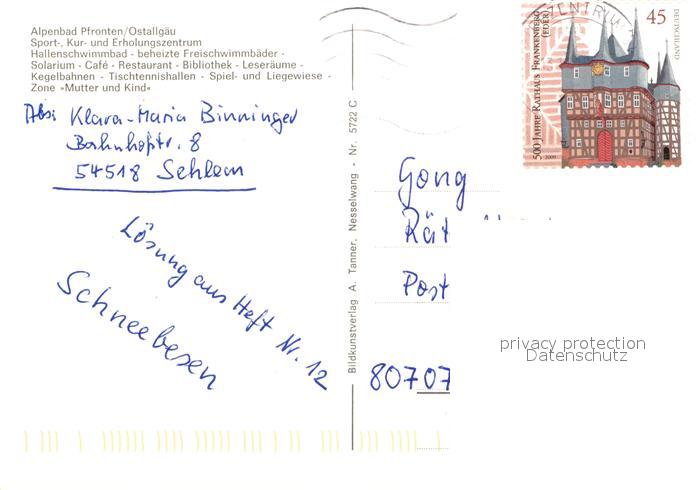 Alpenbad Pfronten/Ostallgäu
Sport-, Kur- und Erholungszentrum
Hallenschwimmbad - beheizte Freischwimmbäder -
Solarium - Café - Restaurant - Bibliothek - Leseräume -
Kegelbahnen - Tischtennishallen - Spiel- und Liegewiese -
Zone »Mutter und Kind«
Abs: Klara-Maria Binninger
Bahnhofstr. 8
54518 Sehlem
Lösung aus Heft Nr. 12
Schneebesen
Bildkunstverlag A. Tanner, Nesselwang - Nr. 5722 C
500 JAHRE RATHAUS FRANKENBERG
(EDER)
45
DEUTSCHLAND
2009
Gong
Rät
Post
80707
privacy protection
Datenschutz